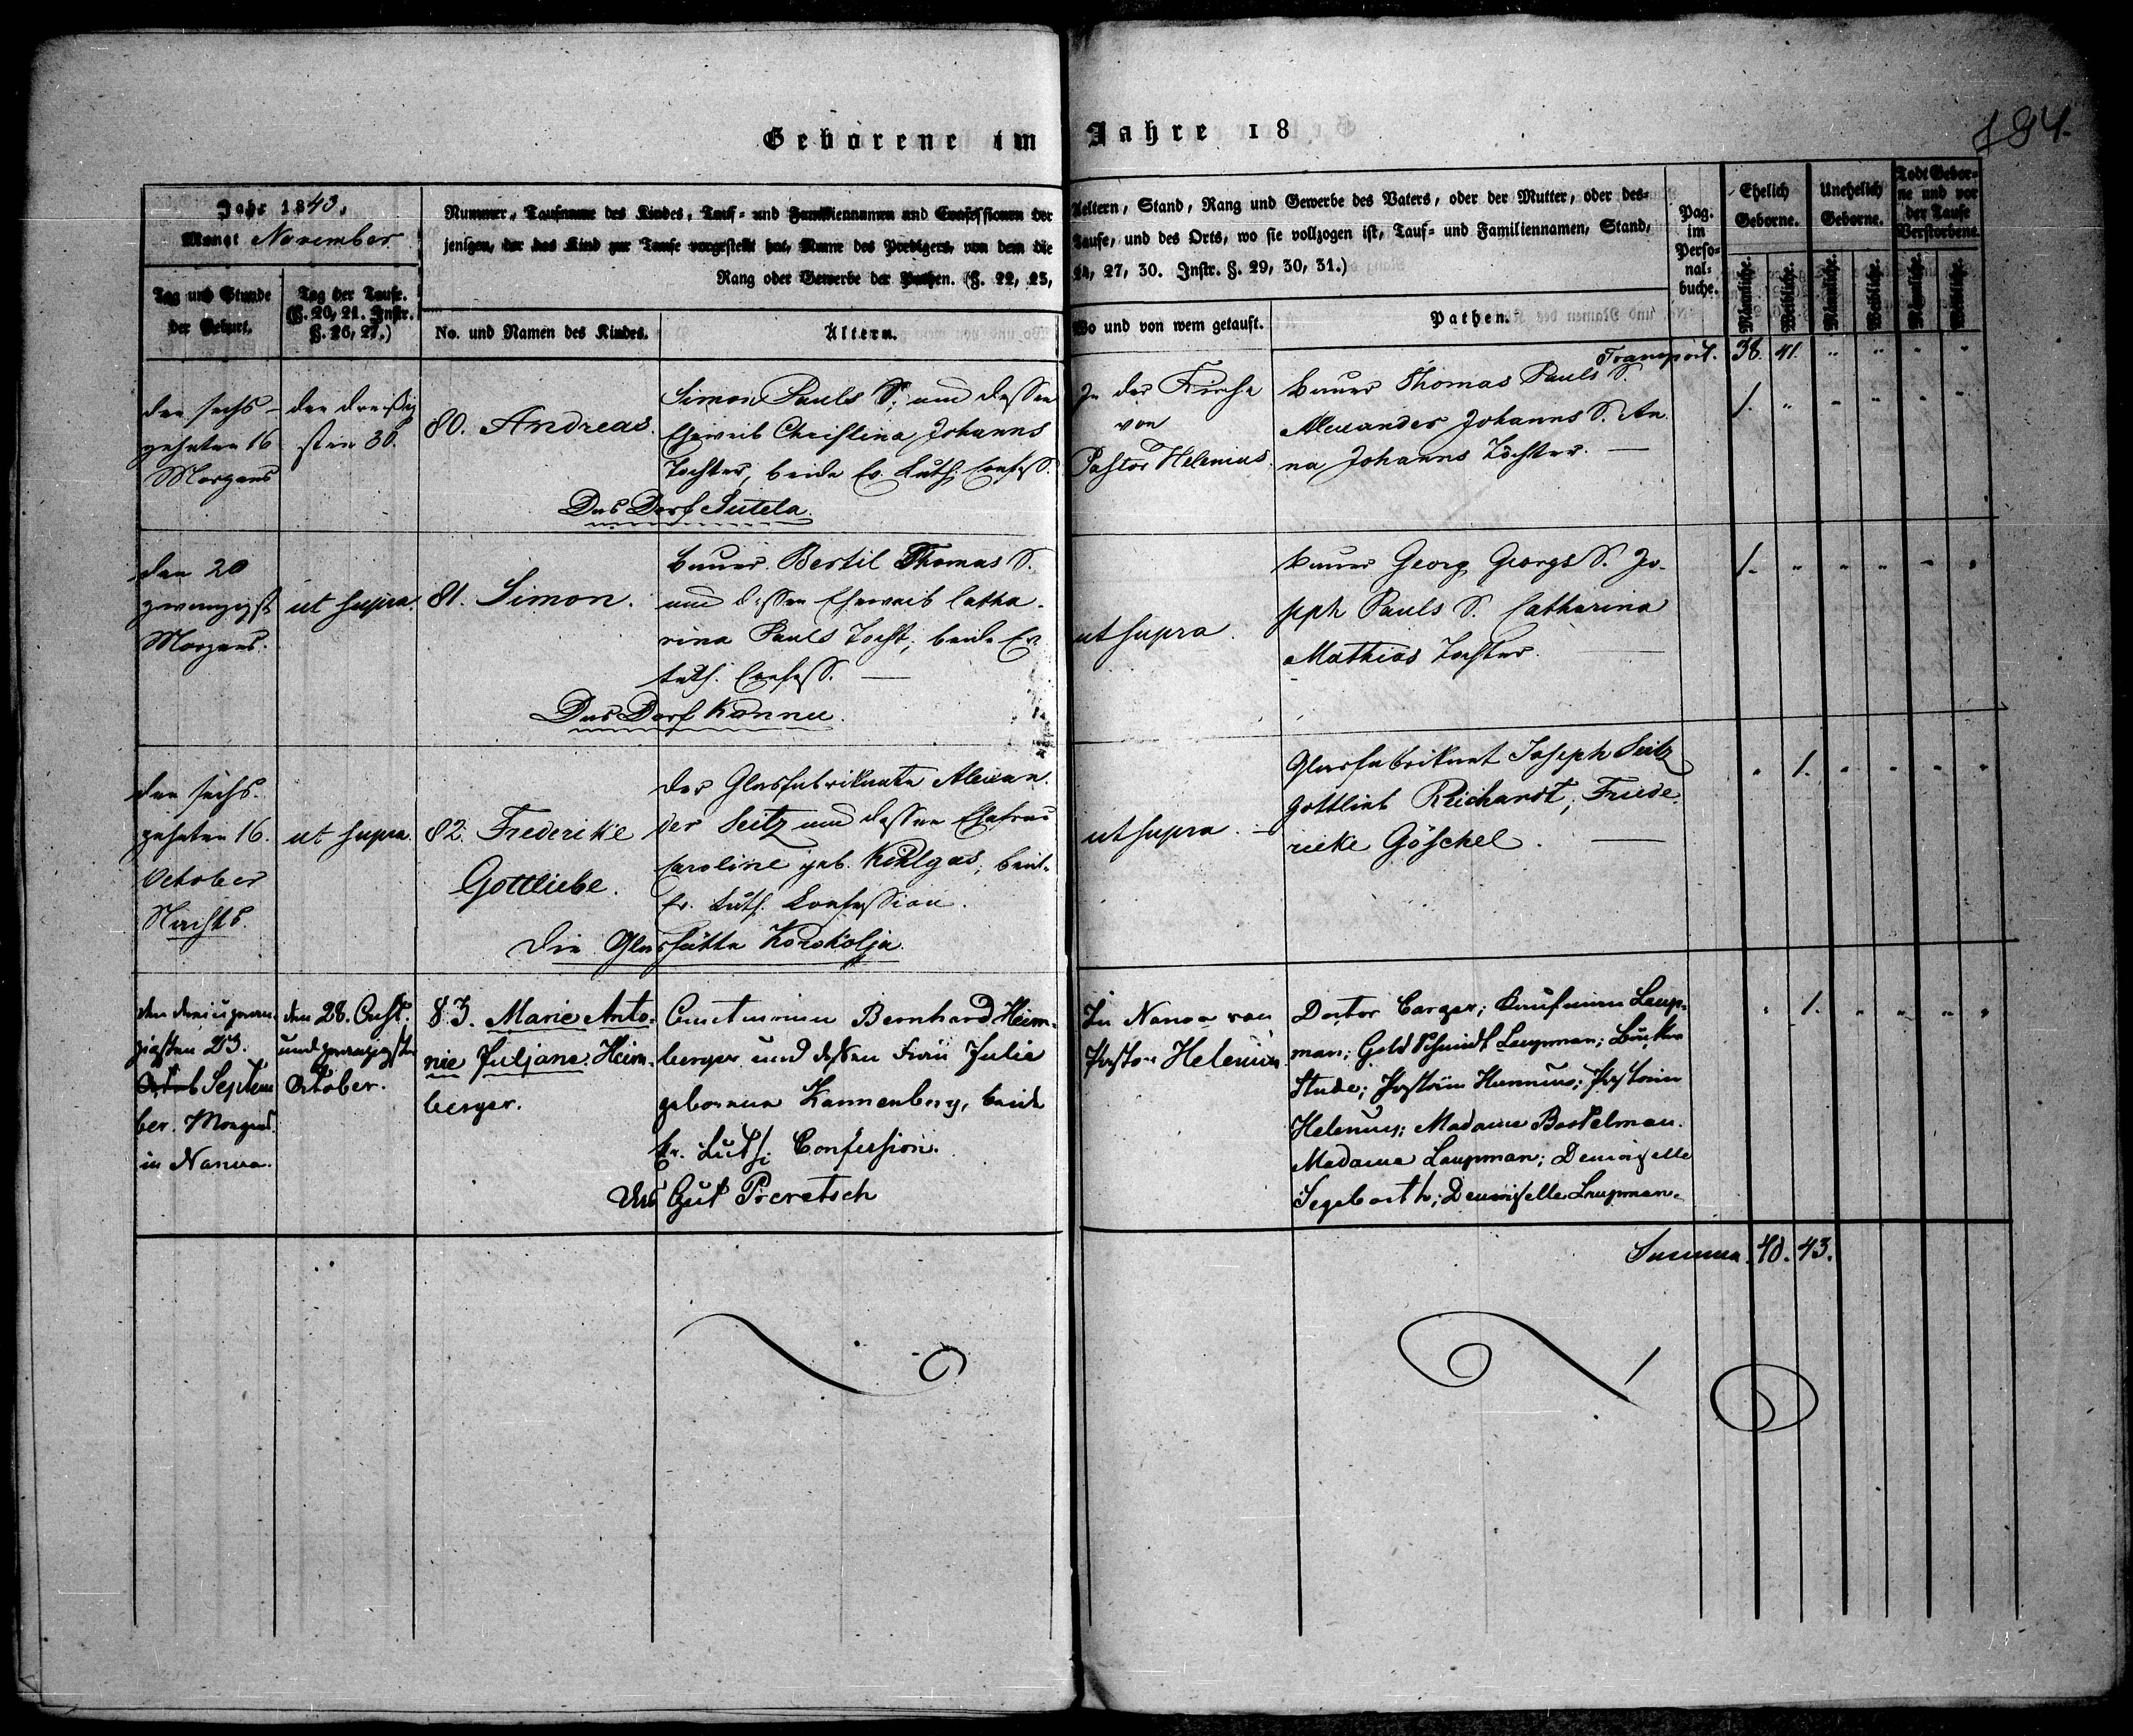 Geborene im Jahre 18
184.
Jahr 1843.
Monat November
Nummer, Taufname des Kindes, Tauf- und Familiennamen und Confessionen der
jenigen, der das Kind zur Taufe vorgestellt hat, Name des Predigers, von dem die
Rang oder Gewerbe der Pathen. (§. 22, 23,
Aeltern, Stand, Rang und Gewerbe des Vaters, oder der Mutter, oder des-
Taufe, und des Orts, wo sie vollzogen ist, Tauf- und Familiennamen, Stand,
24, 27, 30. Instr. §. 29, 30, 31.)
Pag.
im
Perso-
nal-
buche.
Ehelich
Geborne.
Unehelich
Geborne.
Todt Gebor-
ne und vor
der Taufe
Verstorbene.
Tag und Stunde
der Geburt.
Tag der Taufe.
(§. 20, 21. Instr.
§. 26, 27.)
No. und Namen des Kindes.
Ältern.
Wo und von wem getauft.
Pathen.
Männliche.
Weibliche.
Männliche.
Weibliche.
Männliche.
Weibliche.
Transport. 38. 41. " " " "
den sechs-
zehnten 16
Morgens
den dreißig
sten 30.
80. Andreas.
Simon Pauls S. und dessen
Eheweib Christina Johanns
Tochter, beide Ev. Luth. Confess.
Das Dorf Sutela.
In der Kirche
von
Pastor Helenius.
Bauer Thomas Pauls S.
Alexander Johanns S. An
na Johanns Tochter. —
1. " " " " "
den 20
zwanzigst
Morgens.
ut supra.
81. Simon.
Bauer Bertil Thomas S.
und dessen Eheweib Catha-
rina Pauls Tocht., beide Ev.
Luth. Confess. —
Das Dorf Konnu.
ut supra.
Bauer Georg Georgs S. Jo-
seph Pauls S. Catharina
Mathias Tochter. —
1. " " " " "
den sechs-
zehnten 16.
October
Nachts.
ut supra.
82. Frederike
Gottliebe.
der Glasfabrikante Alexan-
der Seitz und dessen Ehefrau
Caroline geb. Kihlgas, beide
Ev. Luth. Confession.
Die Glashütte Korokolja.
ut supra. —
Glasfabrikant Joseph Seitz
Gottlieb Reichardt, Friede-
rieke Göschel. —
" 1. " " " "
den dreiundzwan-
zigsten 23.
Septem
ber. Morgens.
in Narwa.
den 28. Acht
und zwanzigsten
October.
83. Marie Anto-
nie Juljane Heim-
berger.
Amtmann Bernhard Heim-
berger und dessen Frau Julie
geborene Kannenberg, beide
Ev. Luth. Confession.
Das Gut Preretsch
In Narwa von
Pastor Helenius.
Doctor Carger; Kaufmann Laup-
man; Goldschmidt Laupman; Bäcker
Stude; Pastorin Hunnius; Pastorin
Helenius; Madame Bostelman.
Madame Laupman; Demoiselle
Segeborth; Demoiselle Laupman.
" 1. " " " "
Summa. 40. 43.